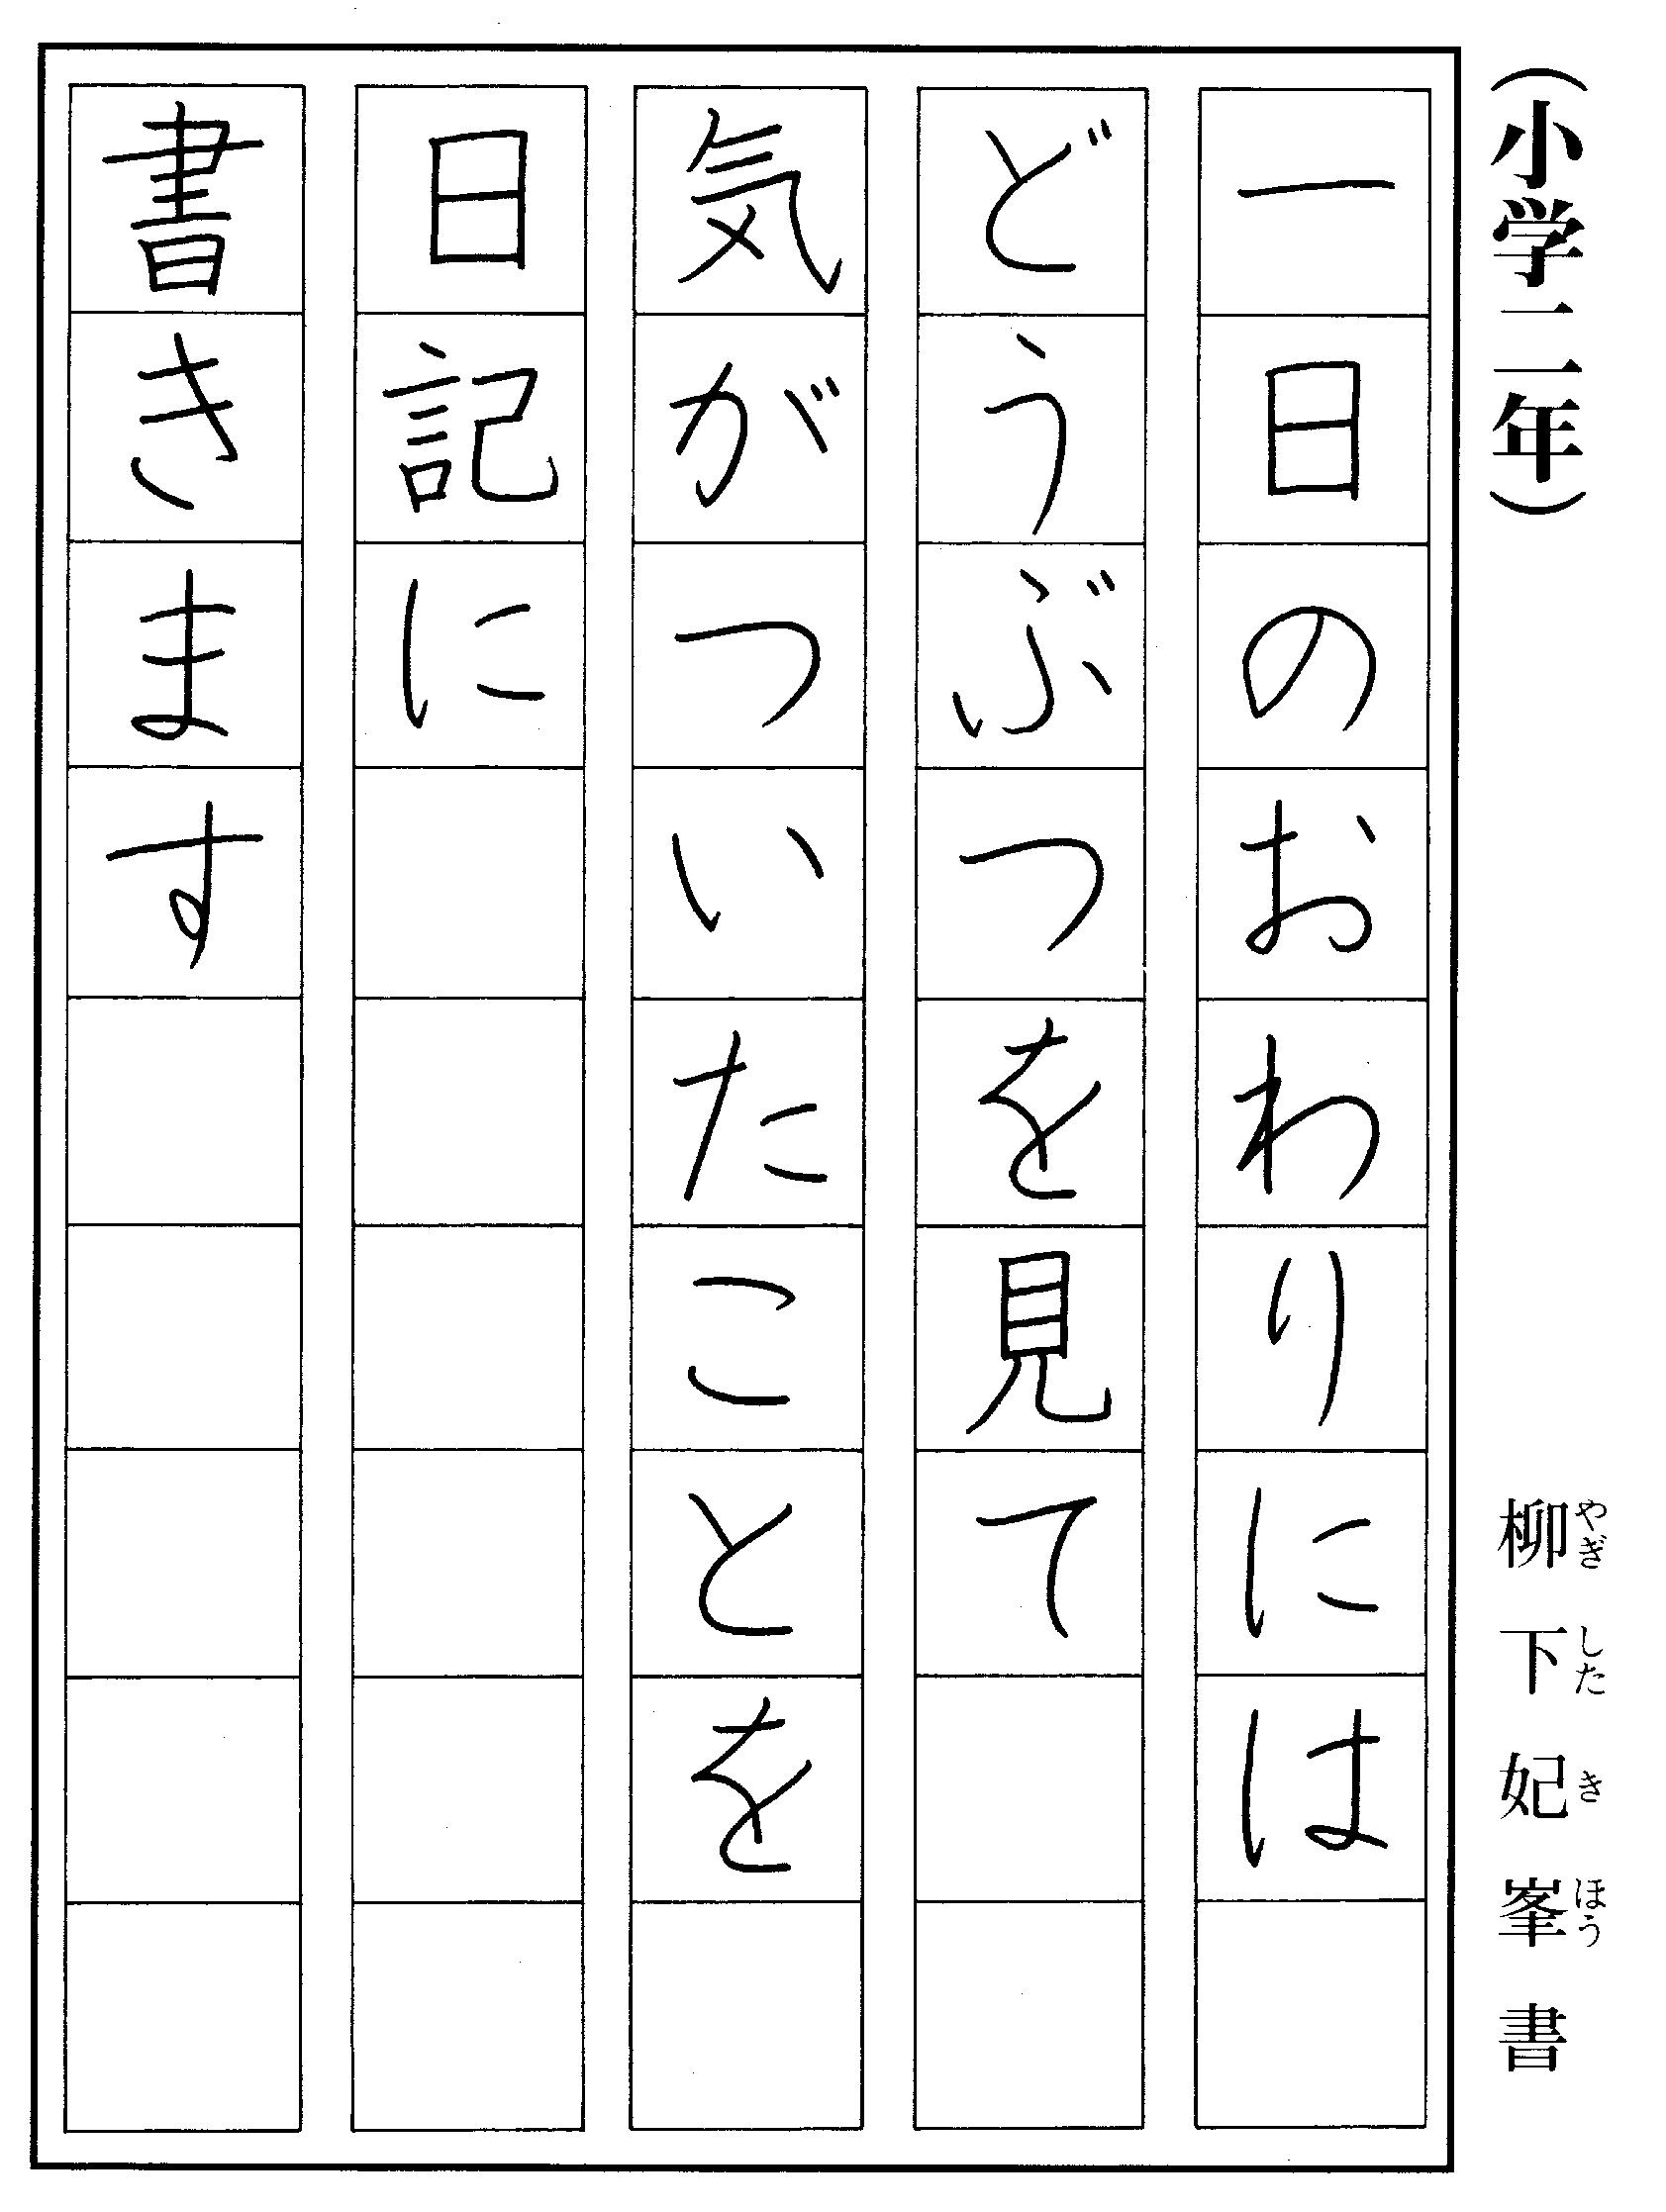 （小学二年）
柳下妃峯書
やぎ した き ほう
一日のおわりには
どうぶつを見て
気がついたことを
日記に
書きます